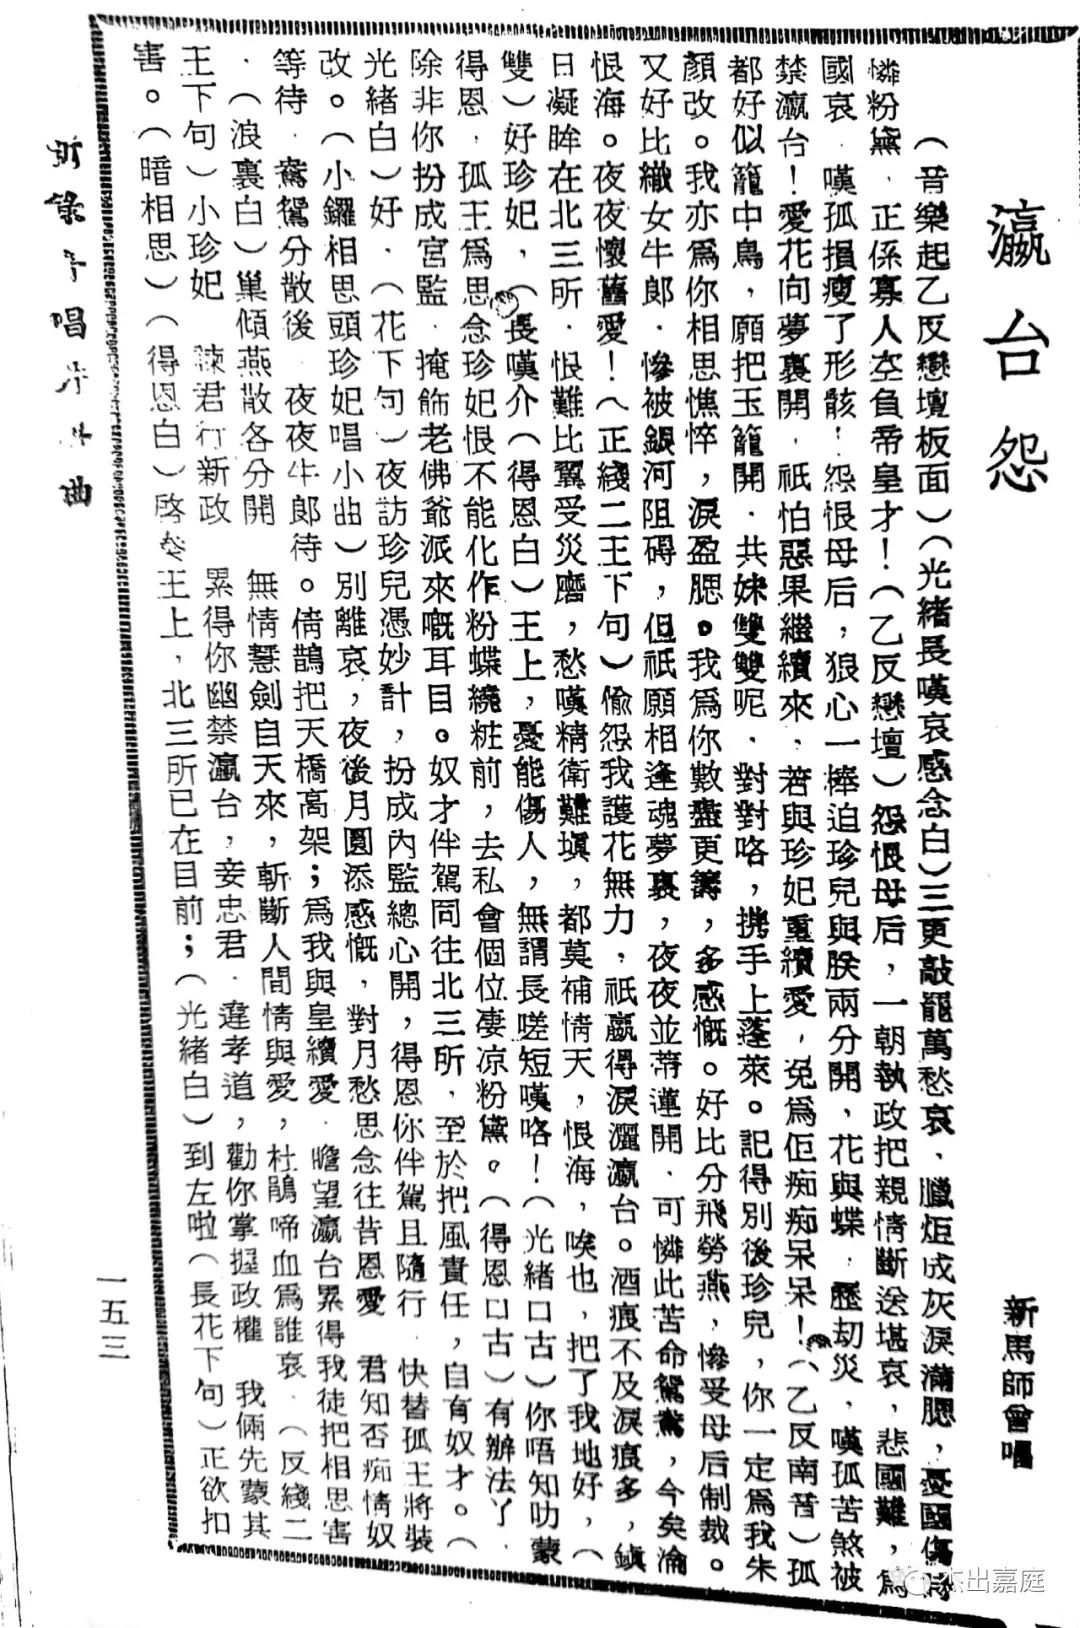 瀛台怨
新馬師曾唱
(音樂起乙反戀壇板面)(光緒長嘆哀感念白)三更敲罷萬愁哀．臘炬成灰淚滿腮，憂國傷時
憐粉黛．正係寡人空負帝皇才！(乙反戀壇)怨恨母后，一朝執政把親情斷送堪哀，悲國難，為
國哀．嘆孤損瘦了形骸！怨恨母后，狠心一棒迫珍兒與朕兩分開，花與蝶．歷刧災．嘆孤苦煞被
禁瀛台！愛花向夢裏開．祇怕惡果繼續來．若與珍妃重續愛，免為佢痴痴呆呆！(乙反南音)孤
都好似籠中鳥，願把玉籠開．共妹雙雙呢．對對咯，携手上蓬萊。記得別後珍兒，你一定為我朱
顏改。我亦為你相思憔悴，淚盈腮。我為你數盡更籌，多感慨。好比分飛勞燕，慘受母后制裁。
又好比織女牛郎．慘被銀河阻碍，但祇願相逢魂夢裏，夜夜並蒂蓮開．可憐此苦命鴛鴦，今矣淪
恨海。夜夜懷舊愛！(正綫二王下句)偷怨我護花無力，祇贏得淚灑瀛台。酒痕不及淚痕多，鎮
日凝眸在北三所．恨難比翼受災磨，愁嘆精衛難填，都莫補情天，恨海，唉也，把了我地好，(
雙)好珍妃，(長嘆介(得恩白)王上，憂能傷人，無謂長嗟短嘆咯！(光緒口古)你唔知叻蒙
得恩．孤王為思念珍妃恨不能化作粉蝶繞粧前，去私會個位凄凉粉黛。(得恩口古)有辦法丫
除非你扮成宮監．掩飾老佛爺派來嘅耳目。奴才伴駕同往北三所．至於把風責任，自有奴才。(
光緒白)好．(花下句)夜訪珍兒憑妙計，扮成內監總心開，得恩你伴駕且隨行　快替孤王將裝
改。(小鑼相思頭珍妃唱小曲)別離哀，夜後月圓添感慨，對月愁思念往昔恩愛　君知否痴情奴
等待．鴛鴦分散後　夜夜牛郎待。倚鵲把天橋高架；為我與皇續愛．瞻望瀛台累得我徒把相思害
．(浪裏白)巢傾燕散各分開　無情慧劍自天來，斬斷人間情與愛，杜鵑啼血為誰哀．(反綫二
王下句)小珍妃　諫君行新政　累得你幽禁瀛台，妾忠君．違孝道，勸你掌握政權　我倆先蒙其
害。(暗相思)(得恩白)啓奏王上，北三所已在目前；(光緒白)到左啦(長花下句)正欲扣
唱
曲
一五三
杰出嘉庭